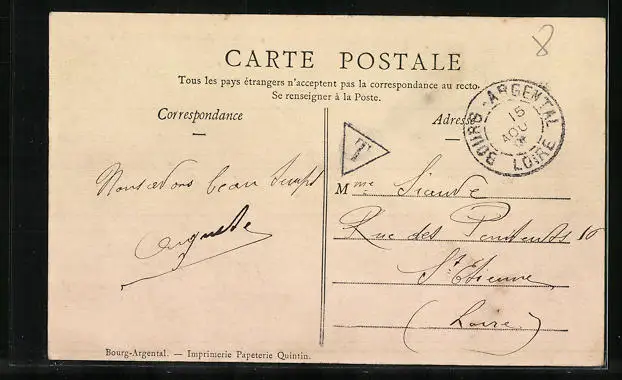 8
CARTE POSTALE
Tous les pays étrangers n'acceptent pas la correspondance au recto.
Se renseigner à la Poste.
Correspondance
Adresse
BOURG-ARGENTAL
15
AOU
LOIRE
T
Nous avons beau temps
Auguste
Mme Siaude
Rue des Penitents 16
St Etienne
(Loire)
Bourg-Argental. — Imprimerie Papeterie Quintin.